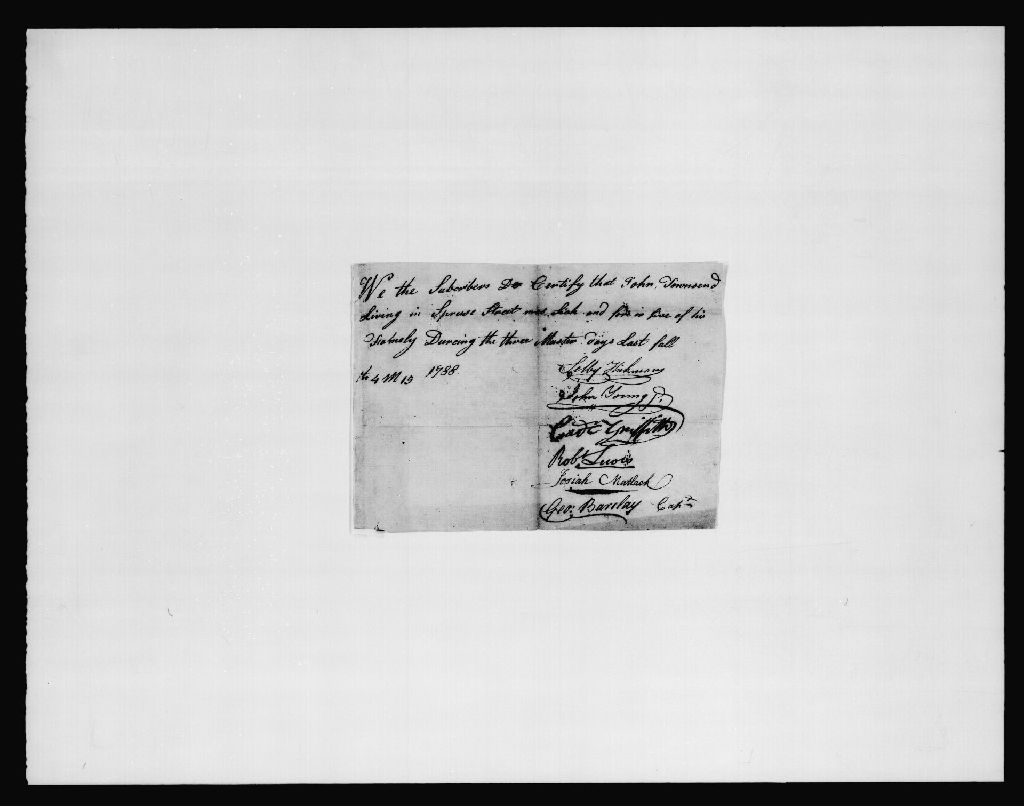 We the Subcribers Do Certify that John Townsend
Living in Spruse Street was Sick and his of his
Famely Durcing the three Muster days Last fall
4 M 13 1788
Selby Hickmans
John Young Jr.
Cadr Griffith
Robt Lewis
Josiah Matlack
Geo: Barclay Capt